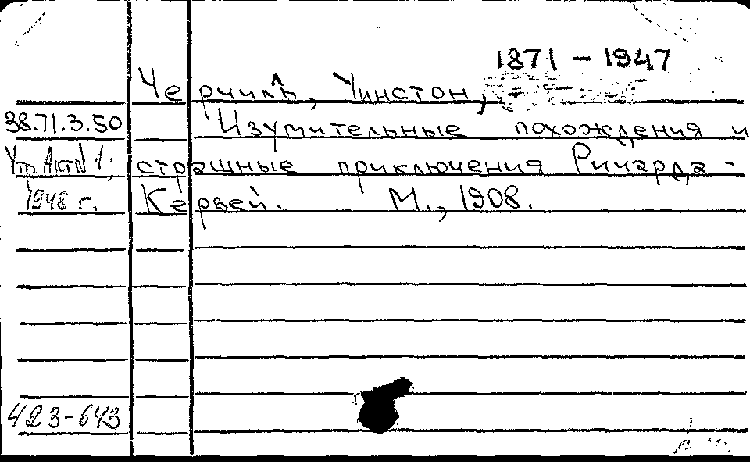 1871 – 1947
Черчилль, Уинстон,
38.71.3.50 Изумительные похождения и
Утв. Акт № 1; страшные приключения Ричарда-
1948 г. Кервей. М., 1908.
423-643